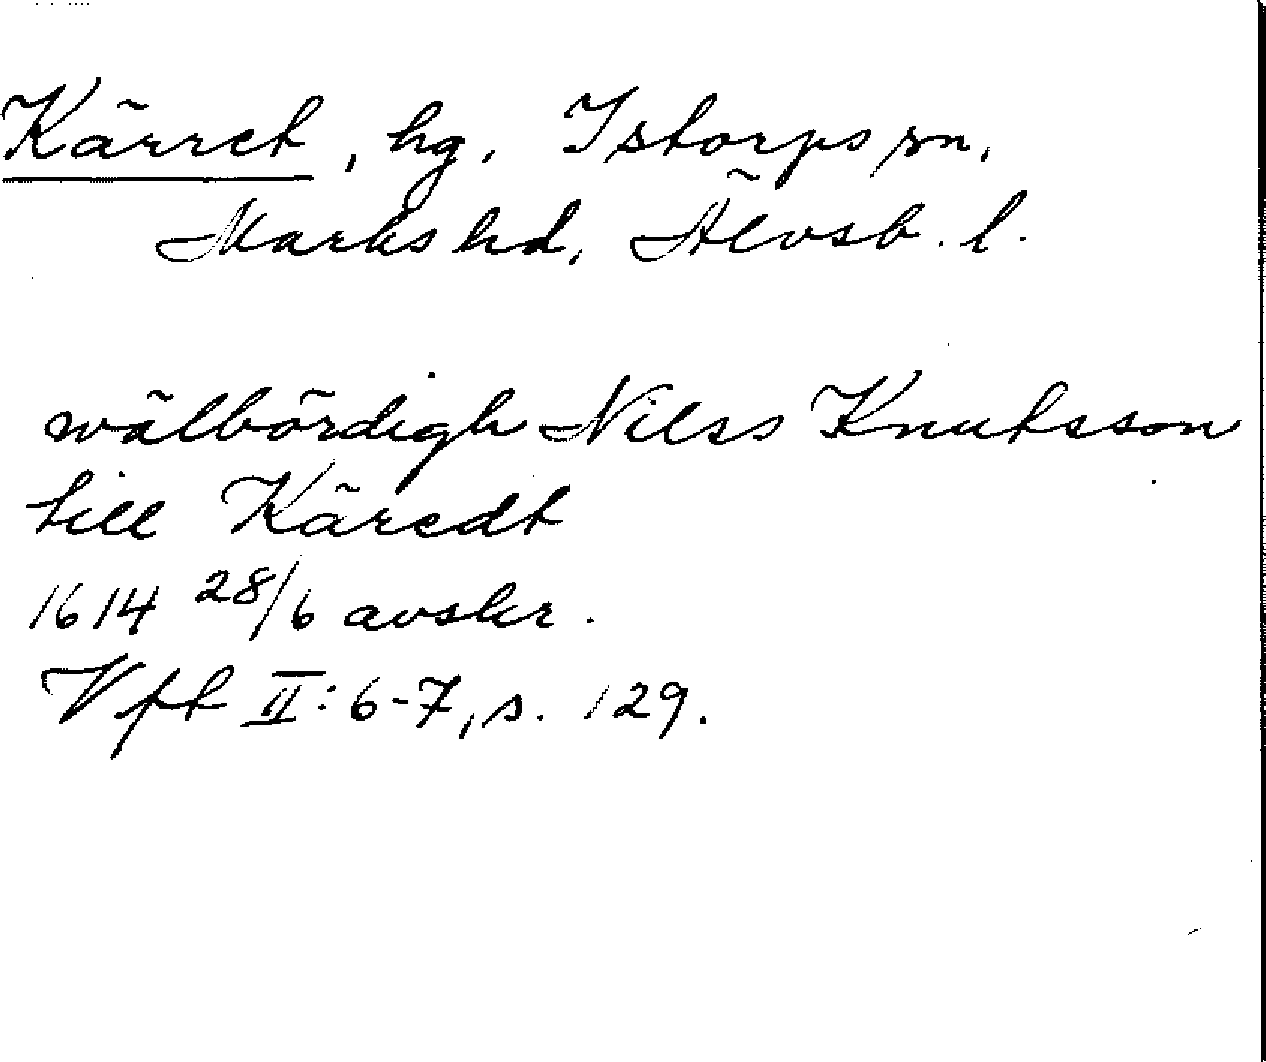 Kärret, hg. Istorps sn,
Marks hd, Älvsb. l.
wälbördigh Nilss Knutsson
till Käredt
1614 28/6 avskr.
Vft II: 6-7, s. 129.